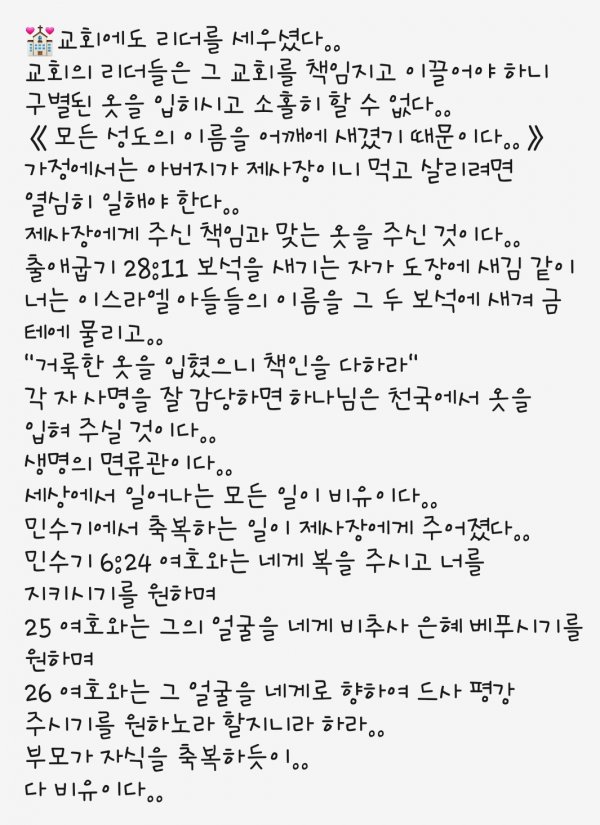 💒교회에도 리더를 세우셨다..
교회의 리더들은 그 교회를 책임지고 이끌어야 하니
구별된 옷을 입히시고 소홀히 할 수 없다..
《 모든 성도의 이름을 어깨에 새겼기 때문이다.. 》
가정에서는 아버지가 제사장이니 먹고 살리려면
열심히 일해야 한다..
제사장에게 주신 책임과 맞는 옷을 주신 것이다..
출애굽기 28:11 보석을 새기는 자가 도장에 새김 같이
너는 이스라엘 아들들의 이름을 그 두 보석에 새겨 금
테에 물리고..
"거룩한 옷을 입혔으니 책인을 다하라"
각 자 사명을 잘 감당하면 하나님은 천국에서 옷을
입혀 주실 것이다..
생명의 면류관이다..
세상에서 일어나는 모든 일이 비유이다..
민수기에서 축복하는 일이 제사장에게 주어졌다..
민수기 6:24 여호와는 네게 복을 주시고 너를
지키시기를 원하며
25 여호와는 그의 얼굴을 네게 비추사 은혜 베푸시기를
원하며
26 여호와는 그 얼굴을 네게로 향하여 드사 평강
주시기를 원하노라 할지니라 하라..
부모가 자식을 축복하듯이..
다 비유이다..